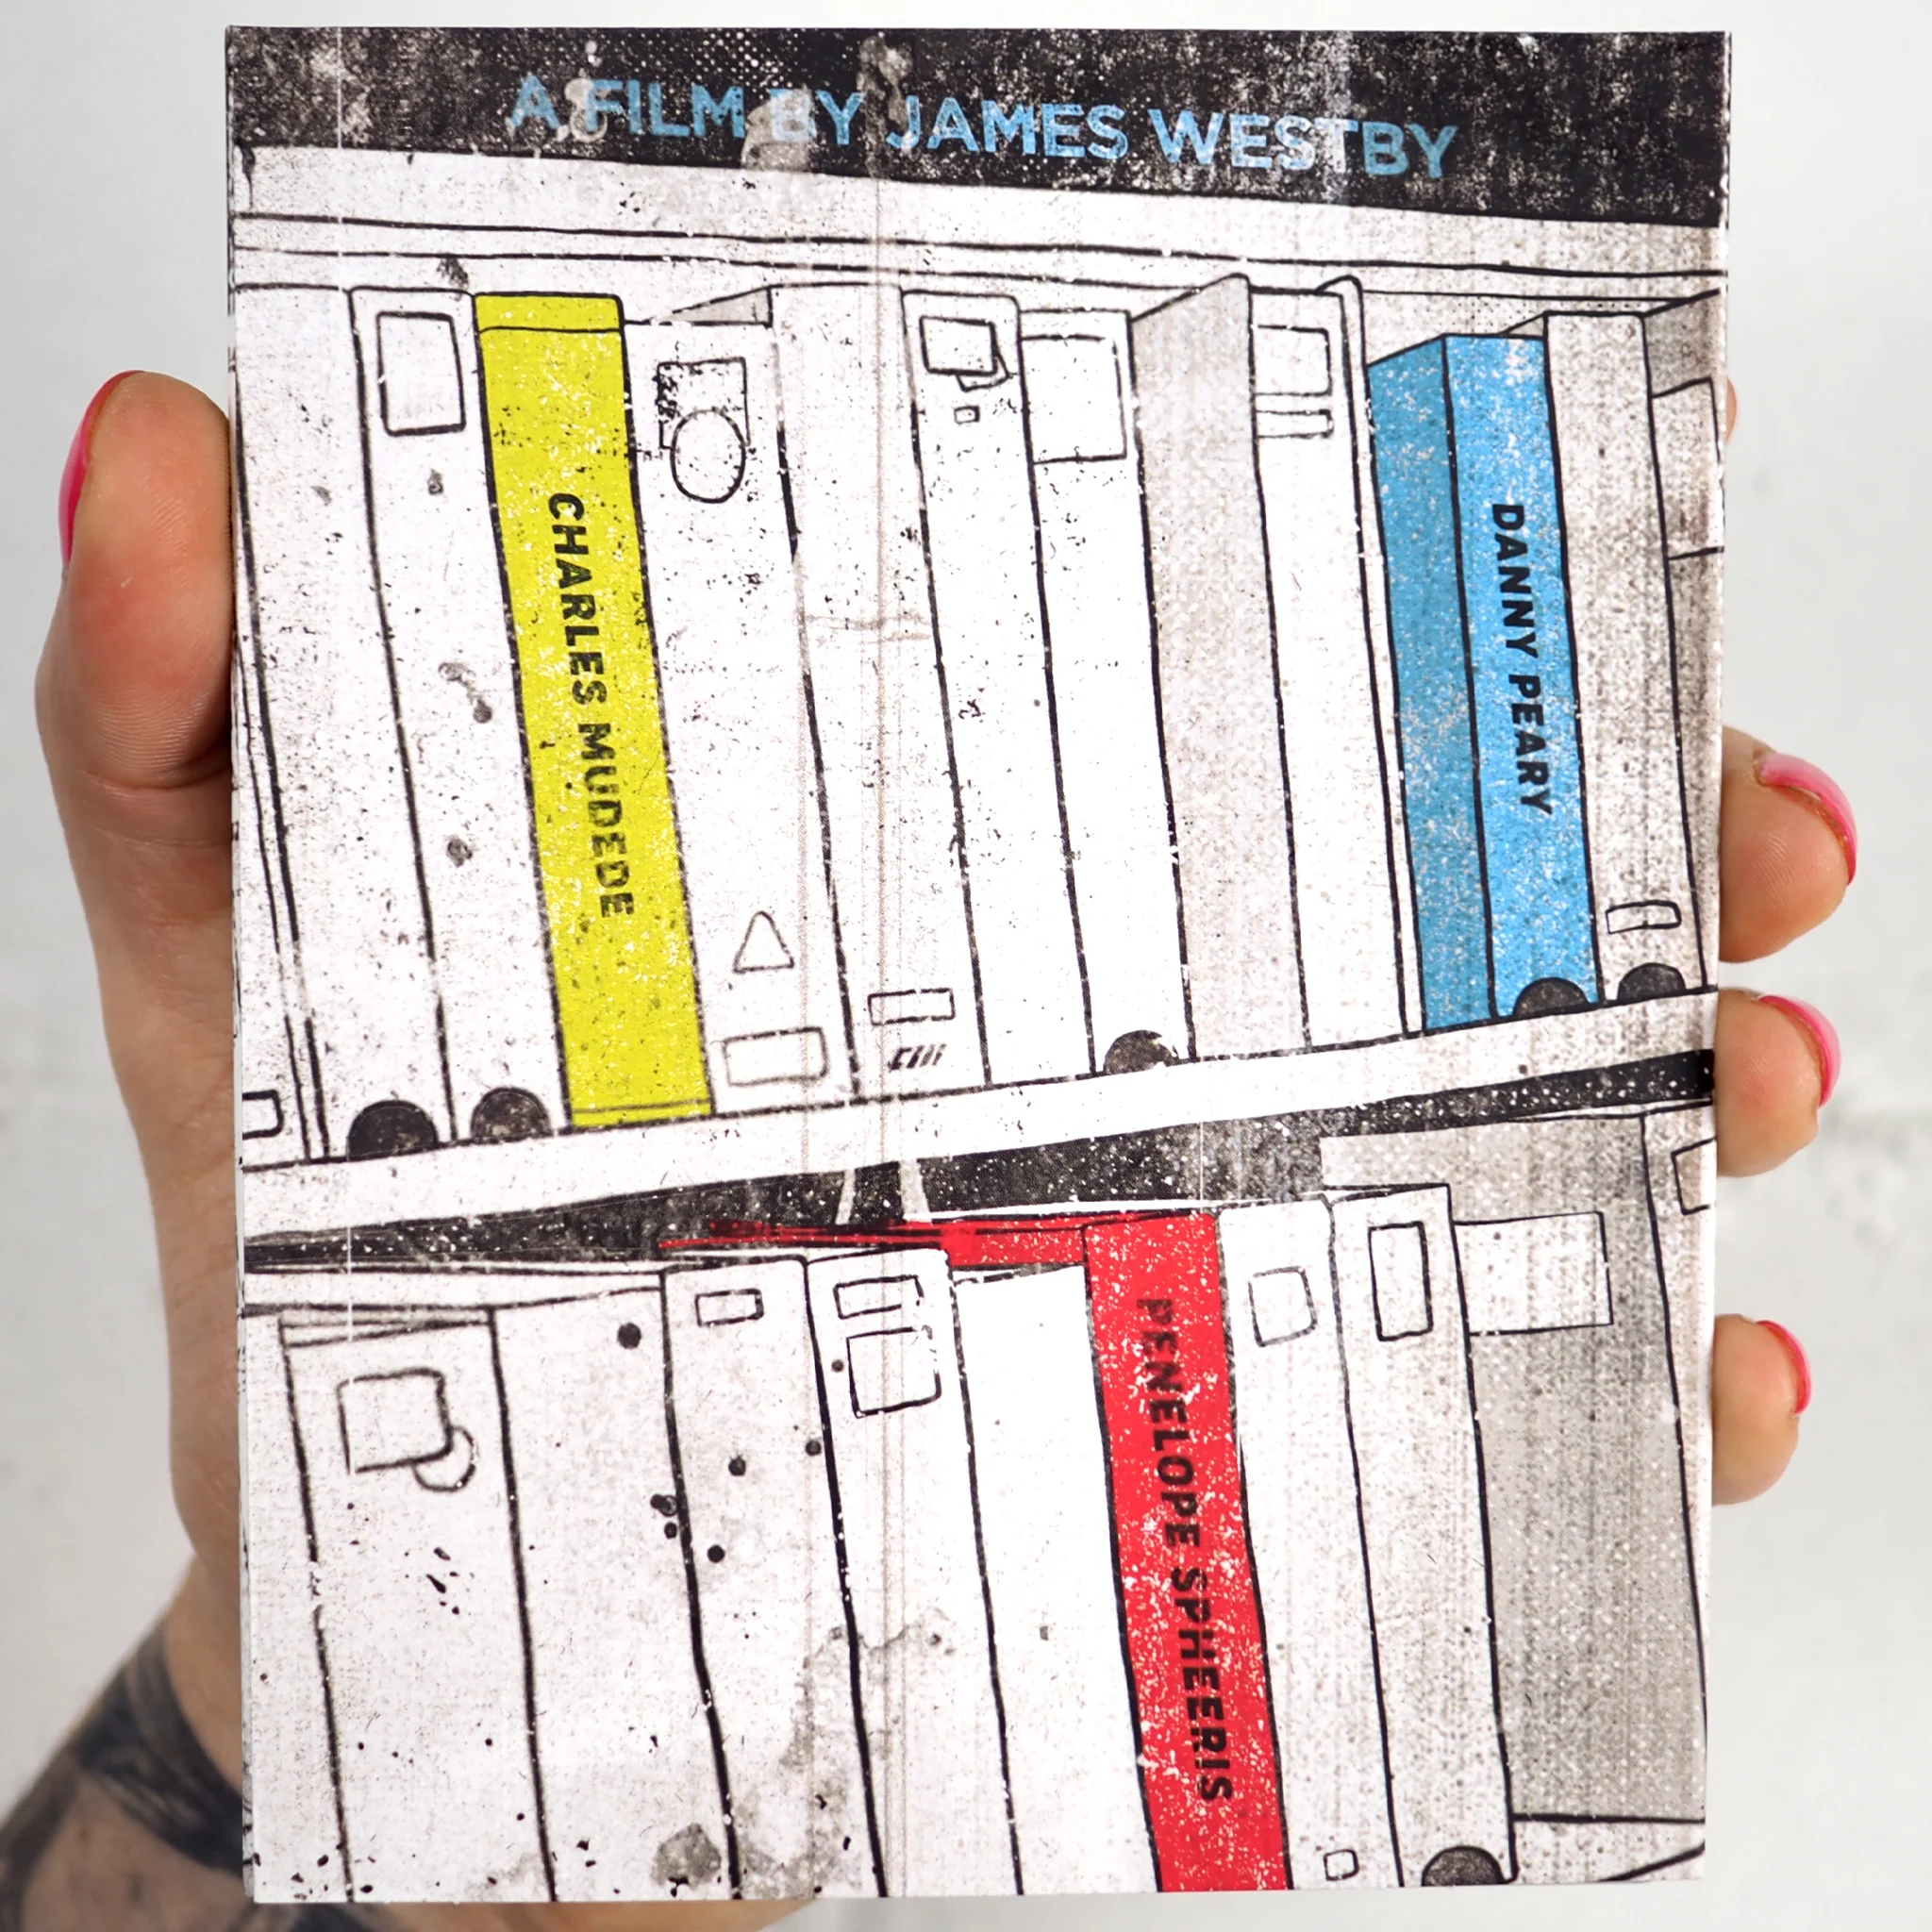 A FILM BY JAMES WESTBY
CHARLES MUDEDE
DANNY PEARY
PENELOPE SPHEERIS